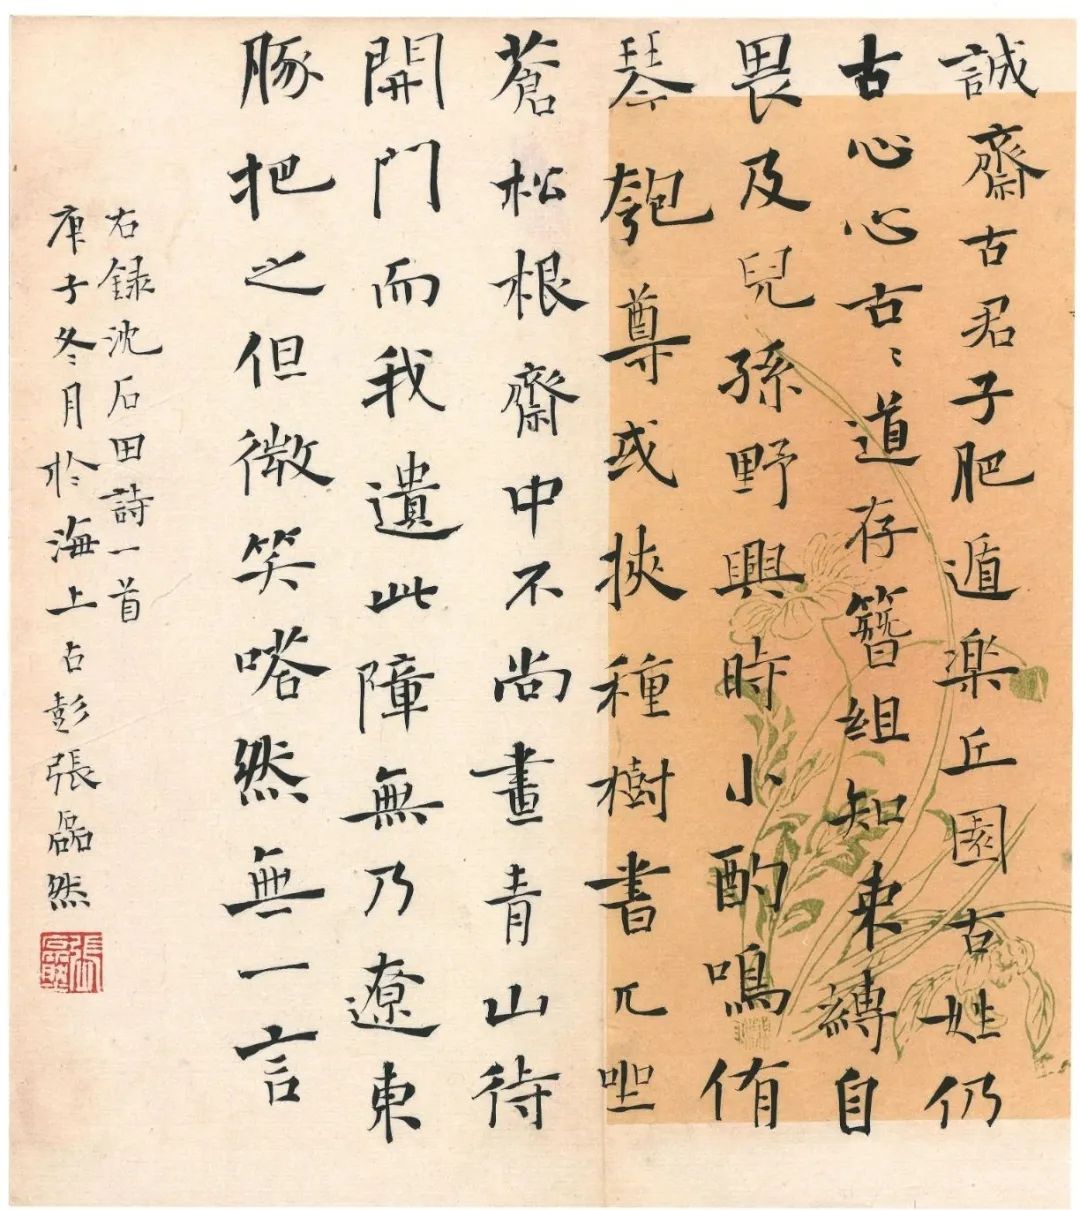 誠齋古君子肥遁楽丘園古姓仍
古心心古〻道存簪組知束縛自
畏及兒孫野興時小酌鳴侑
琴匏尊或挾種樹書兀坐
蒼松根齋中不尚畫青山待
開門而我遺此障無乃遼東
豚把之但微笑嗒然無一言
右録沈石田詩一首
庚子冬月於海上古彭張磊然